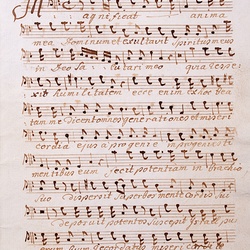 Magnificat anima
mea Dominum et exultavit spiritus meus
in Deo salutari meo quia respe
xit humilitatem ecce enim ex hoc bea
tam me dicent omnes generationes et miseri
cordia ejus a progenie in progenies ti
mentibus eum fecit potentiam in brachio
suo dispersit superbos mente cordis sui
deposuit potentes suscepit Israel pu
erum suum recordatus misericordiae